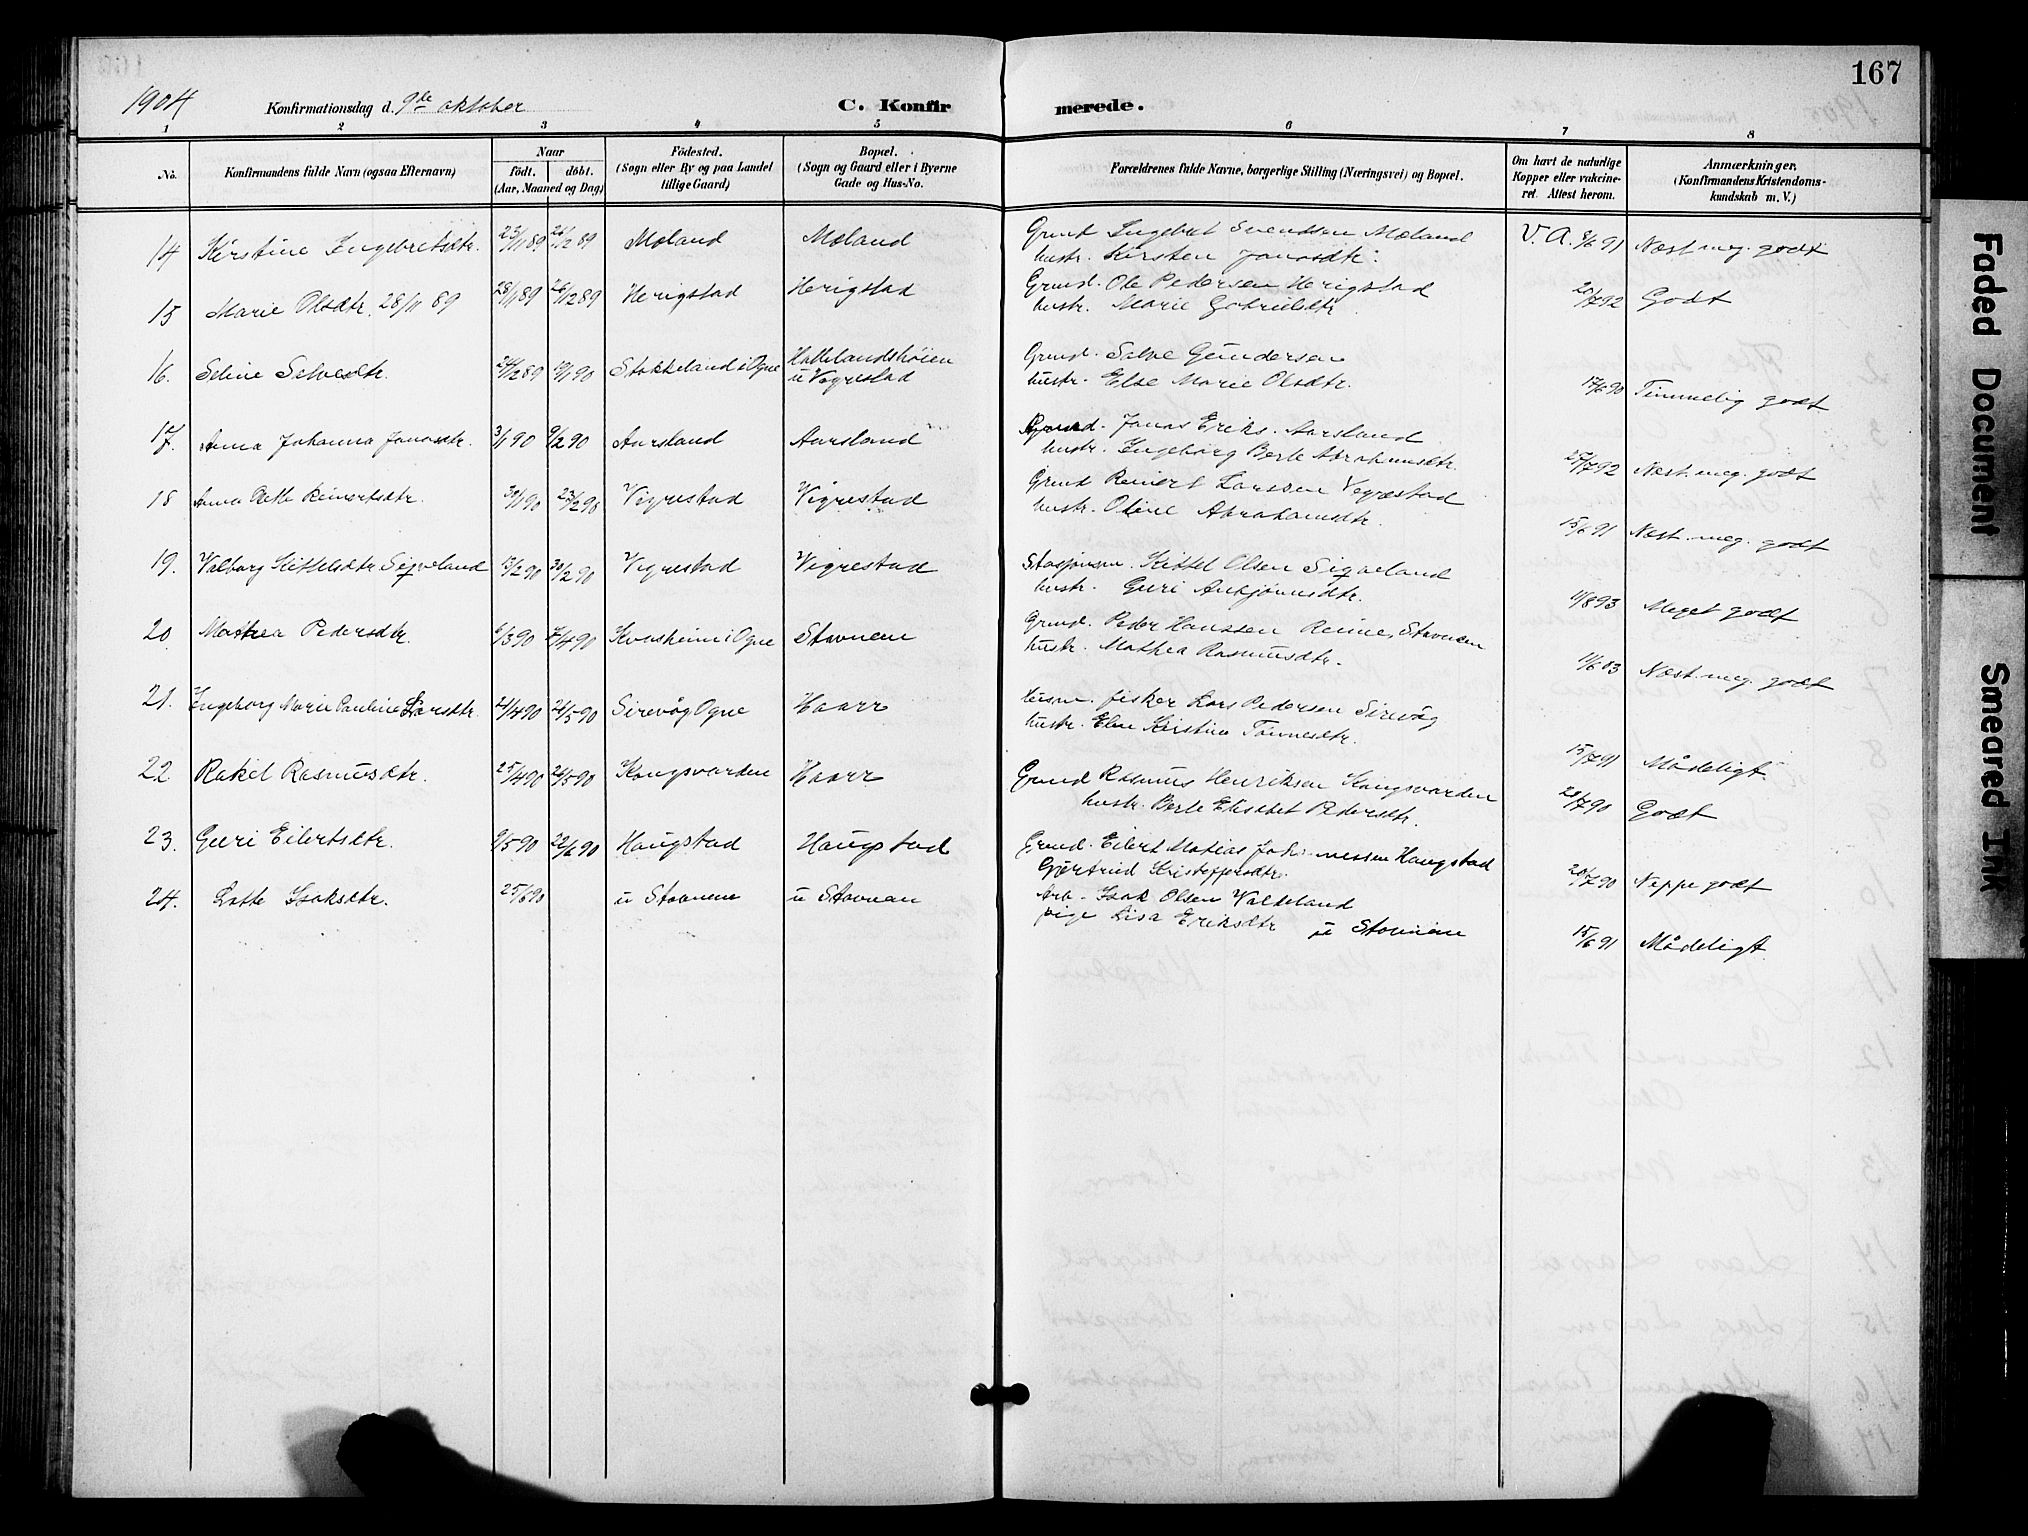 167
1904 Konfirmationsdag d. 9de oktober C. Konfirmerede.
1 2 3 4 5 6 7 8
No. Konfirmandens fulde Navn (ogsaa Efternavn) Naar födt. döbt. (Aar, Maaned og Dag) Födested. (Sogn eller By og paa Landet tillige Gaard) Bopæl. (Sogn og Gaard eller i Byerne Gade og Hus-No. Forældrenes fulde Navne, borgerlige Stilling (Næringsvei) og Bopæl. Om havt de naturlige Kopper eller vakcineret. Attest herom. Anmærkninger. (Konfirmandens Kristendomskundskab m. V.)
14 Kirstine Ingebretsdtr. 23/11 89 26/12 89 Mæland Mæland Grmd Ingebret Svendsen Mæland V. A. 8/6 91 Næst. meg. godt
hustr. Kirsten Jonasdtr.
15 Marie Olsdtr. 28/11 89 28/11 89 26/12 89 Herigstad Herigstad Grmd. Ole Pedersen Herigstad 20/7 92 Godt
hustr. Marie Gabrielsdtr
16. Seline Salvesdtr. 24/12 89 19/1 90 Stokkeland i Ogne Hattelandshöien Grmd. Salve Gundersen
u Vigrestad hustr. Else Marie Olsdtr. 17/6 90 Temmelig godt
17. Anna Johanna Jonasdtr. 3/1 90 9/2 90 Aarsland Aarsland Grmd. Jonas Eriks. Aarsland
hustr. Ingeborg Berte Abrahamsdtr. 27/7 92 Næst. meg. godt
18 Anna Reinertsdtr. 30/1 90 23/2 90 Vigrestad Vigrestad Grmd Reinert Larssen Vigrestad
hustr. Oline Abrahamsdtr. 15/6 91 Næst. meg. godt
19. Valborg Kittelsdtr Sigveland 13/2 90 30/2 90 Vigrestad Vigrestad Kittel Olsen Sigveland
hustr. Guri Anbjörnsdtr. 11/8 93 Meget godt
20 Mathea Pedersdtr. 6/3 90 7/4 90 Kvasheim i Ogne Stavnem Grmd. Peder Hanssen Reime, Stavnem
hustr. Mathea Rasmusdtr. 11/6 03 Næst. meg. godt
21. Ingeborg Marie Pauline Larsdtr. 21/4 90 26/5 90 Sirevåg Ogne Haarr Husm. fisker Lars Pedersen Sirevåg
hustr. Elen Kirstine Tönnesdtr. 15/7 91 Mådeligt
22 Rakel Rasmusdtr. 25/4 90 26/5 90 Kongsvarden Haarr Grmd Rasmus Henriksen Kongsvarden
hustr. Berte Elisabet Pedersdtr. 28/7 90 Godt
23. Guri Eilertsdtr. 9/5 90 22/6 90 Haugstad Haugstad Grmd. Eilert Matias Johannessen Haugstad
Gjertrud Kristoffersdtr. 20/7 90 Neppe godt
24. Lotte Isaksdtr. 25/6 90 u Stavnem u Stavnem Arb. Isak Olsen Valheland
pige Lisa Eriksdtr u Stavnem 15/6 91 Mådeligt.
Faded Document
Smeared Ink